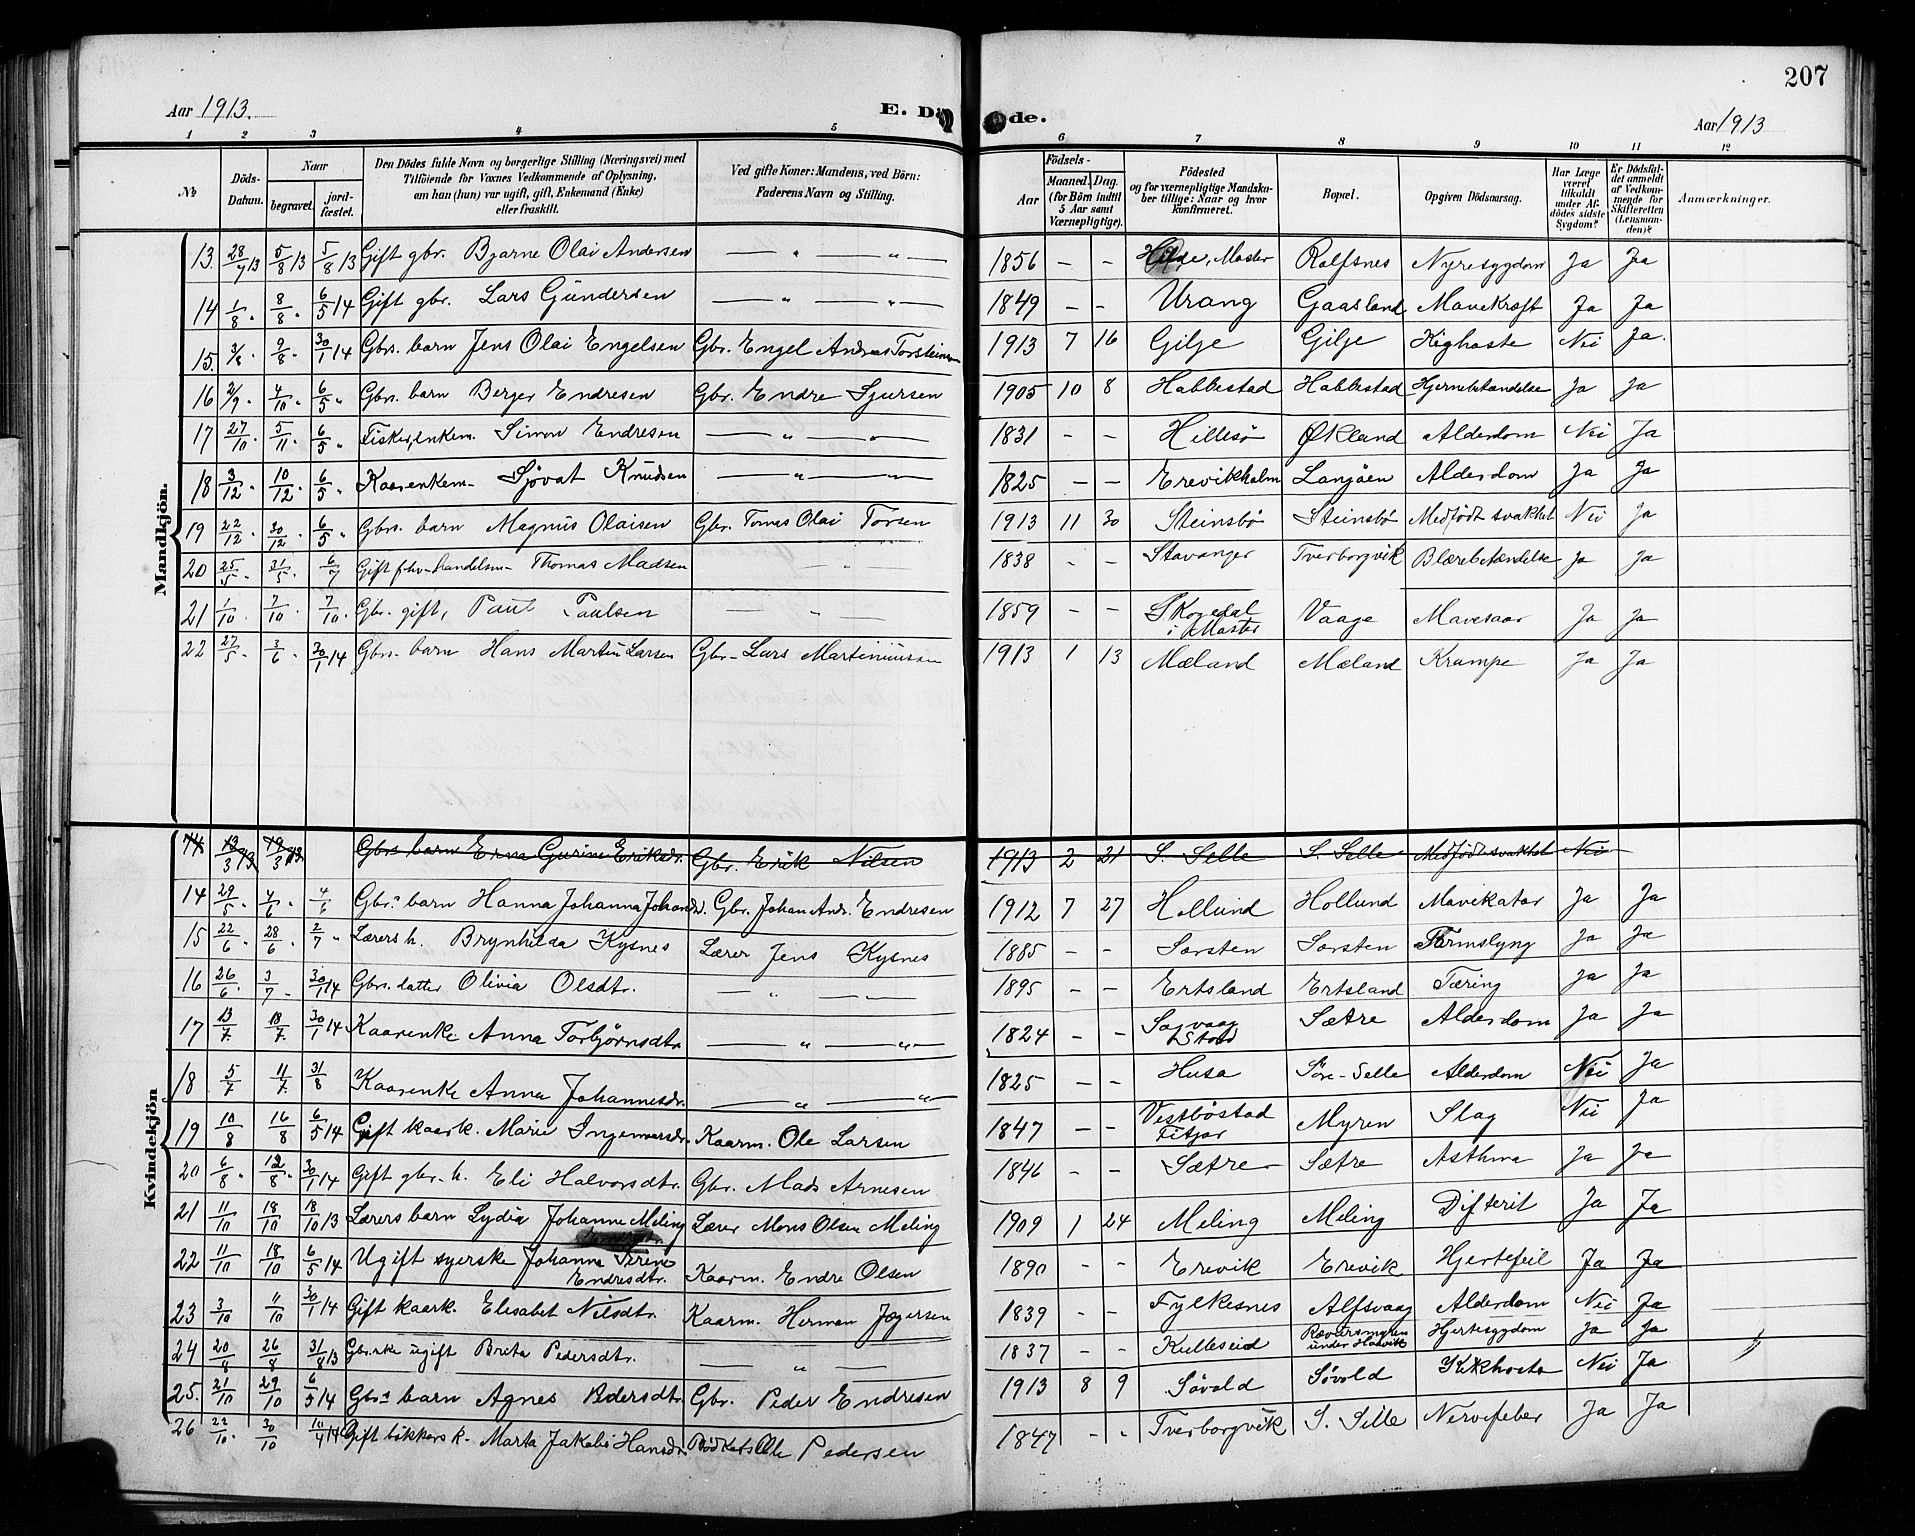 207
Aar 1913.
E. Dö de.
Aar 1913
1 2 3 4 5 6 7 8 9 10 11 12
№
Döds-Datum.
Naar
begravet.
jord-fæstet.
Den Dödes fulde Navn og borgerlige Stilling (Næringsvei) med
Tilföiende for Voxnes Vedkommende af Oplysning,
om han (hun) var ugift, gift, Enkemand (Enke)
eller fraskilt.
Ved gifte Koner: Mandens, ved Börn:
Faderens Navn og Stilling.
Födsels-
Aar
Maaned. Dag.
(for Börn indtil
5 Aar samt
Værnepligtige).
Födested
og for værnepligtige Mandska-
ber tillige: Naar og hvor
konfirmeret.
Bopæl.
Opgiven Dödsaarsag.
Har Læge
været
tilkaldt
under Af-
dödes sidste
Sygdom?
Er Dödsfal-
det anmeldt
af Vedkom-
mende for
Skifteretten
(Lensman-
den)?
Anmærkninger.
Mandkjön.
13. 28/7 13 5/8 13 5/8 13 Gift gbr. Bjarne Olai Andersen — " — " — 1856 — — Moster Rolfsnes Nyresygdom Ja Ja
14 1/8 . 8/8 . 6/5 14 Gift gbr. Lars Gundersen — " — " — 1849 — — Urang Gaasland Mavekræft Ja Ja
15. 3/8 . 9/8 . 30/1 14 Gbrs. barn Jens Olai Engelsen Gbr. Engel Andreas Torsteinsen 1913 7 16 Gilje Gilje Kighoste Nei Ja.
16 2/9 . 4/10 . 6/5 „ Gbrs. barn Berger Endresen Gbr. Endre Sjursen 1905 10 8 Habbestad Habbestad Hjernebetændelse Ja Ja
17 27/10 . 5/11 . 6/5 „ Fisker, enkem. Simon Endresen — " — " — 1831 — — Hillesø Økland Alderdom Nei Ja
18 3/12 . 10/12 . 6/5 „ Kaarenkem. Sjøvat Knudsen — " — " — 1825 — — Erevikholm Langøen Alderdom Ja Ja
19 22/12 . 30/12 . 6/5 „ Gbrs. barn Magnus Olaisen Gbr. Tomas Olai Torsen 1913 11 30 Steinsbø Steinsbø Medfødt svakhet Nei Ja
20 25/5 . 31/5 . 6/7 Gift fhv. handelsm. Thomas Madsen — " — 1838 — — Stavanger Tverborgvik Blærebetændelse Ja Ja
21 1/10 . 7/10 . 7/10 . Gbr. gift, Paul Paulsen — " — 1859 — — Skogedal i Moster Vaage Mavesaar Ja Ja
22 27/5 . 3/6 . 30/1 14 Gbrs. barn Hans Martin Larsen Gbr. Lars Martiniussen 1913 1 13 Mæland Mæland Krampe Ja Ja
Kvindekjön
14 13/3 13 Gbrs. barn Erna Gurine Eriksdr. Gbr. Erik Nilsen 1913 2 21 S. Selle S. Selle Medfødt svakhet Nei
14 29/5 . 4/6 . 4/6 Gbrs. barn Hanna Johanna Johansdr. Gbr. Johan Andr. Endresen 1912 7 27 Hollund Hollund Mavekatar Ja Ja
15 22/6 . 28/6 . 2/7 „ Lærers h. Brynhilda Kysnes Lærer Jens Kysnes 1885 — — Sorsten Sorsten Tarmslyng Ja Ja
16 26/6 . 3/7 . 30/1 14 Gbrs. datter Olivia Olsdtr. — " — " — 1895 — — Ertsland Ertsland Tæring Ja Ja
17 13/7 18/7 . 30/1 14 Kaarenke Anna Torbjørnsdtr. — " — " — 1824 — — Sagvaag Stord Sætre Alderdom Ja Ja
18 5/7 11/7. 31/8 Kaarenke Anna Johannesdr. — " — " — 1825 — — Husa Søre-Selle Alderdom Nei Ja
19 10/8 16/8 6/5 14 Gift kaark. Marie Ingemarsdr. Kaarm. Ole Larsen 1847 — — Vestbøstad Fitjar Myren Slag Nei Ja
20 6/8 . 12/8 . 30/1 14 Gift gbr. h. Eli Halvorsdtr. Gbr. Mads Arnesen 1846 — — Sætre Sætre Asthma Ja Ja
21 11/10 18/10 18/10 13 Lærers barn Lydia Johanne Meling Lærer Mons Olsen Meling 1909 1 24 Meling Meling Difterit Ja Ja
22 11/10 18/10 6/5 14 Ugift syerske Johanna Serine Endresdtr. Kaarm. Endre Olsen 1890 — — Erevik Erevik Hjertefeil Ja Ja
23 3/10 11/10 30/1 14 Gift kaark. Elisabet Nilsdtr. Kaarm. Herman Jægersen 1839 — — Fylkesnes Alfsvaag Alderdom Nei Ja
24 20/8 26/8 31/8 13 ugift Brita Pedersdtr. — " — 1837 — — Kulleseid Rævarsmyren under Haavik Hjertesygdom Ja Ja
25. 21/10 29/10 6/5 14 Gbrs. barn Agnes Pedersdtr. Gbr. Peder Endresen 1913 8 9 Søvold Søvold Kikhoste Nei Ja
26 22/10. 30/10 10/4 14 Gift bøkkers k. Marta Jakobi Hansdr. Bødker Ole Pedersen 1847 — " Tverborgvik S. Selle Nervefeber Ja Ja